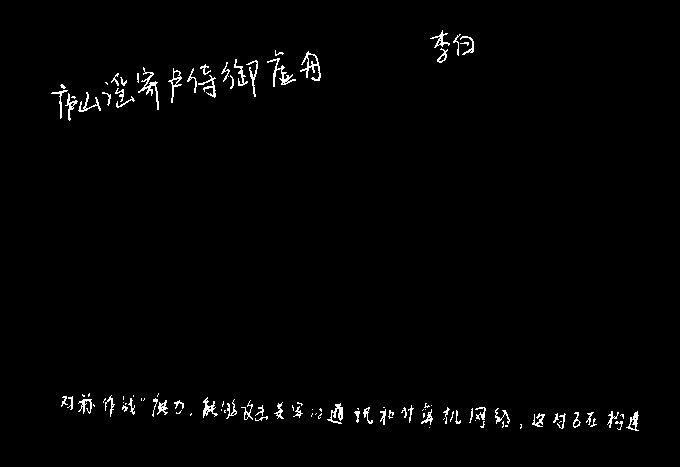 庐山谣寄卢侍御虚舟 李白
对称作战”能力，能够攻击美军的通讯和计算机网络，这对正在构建